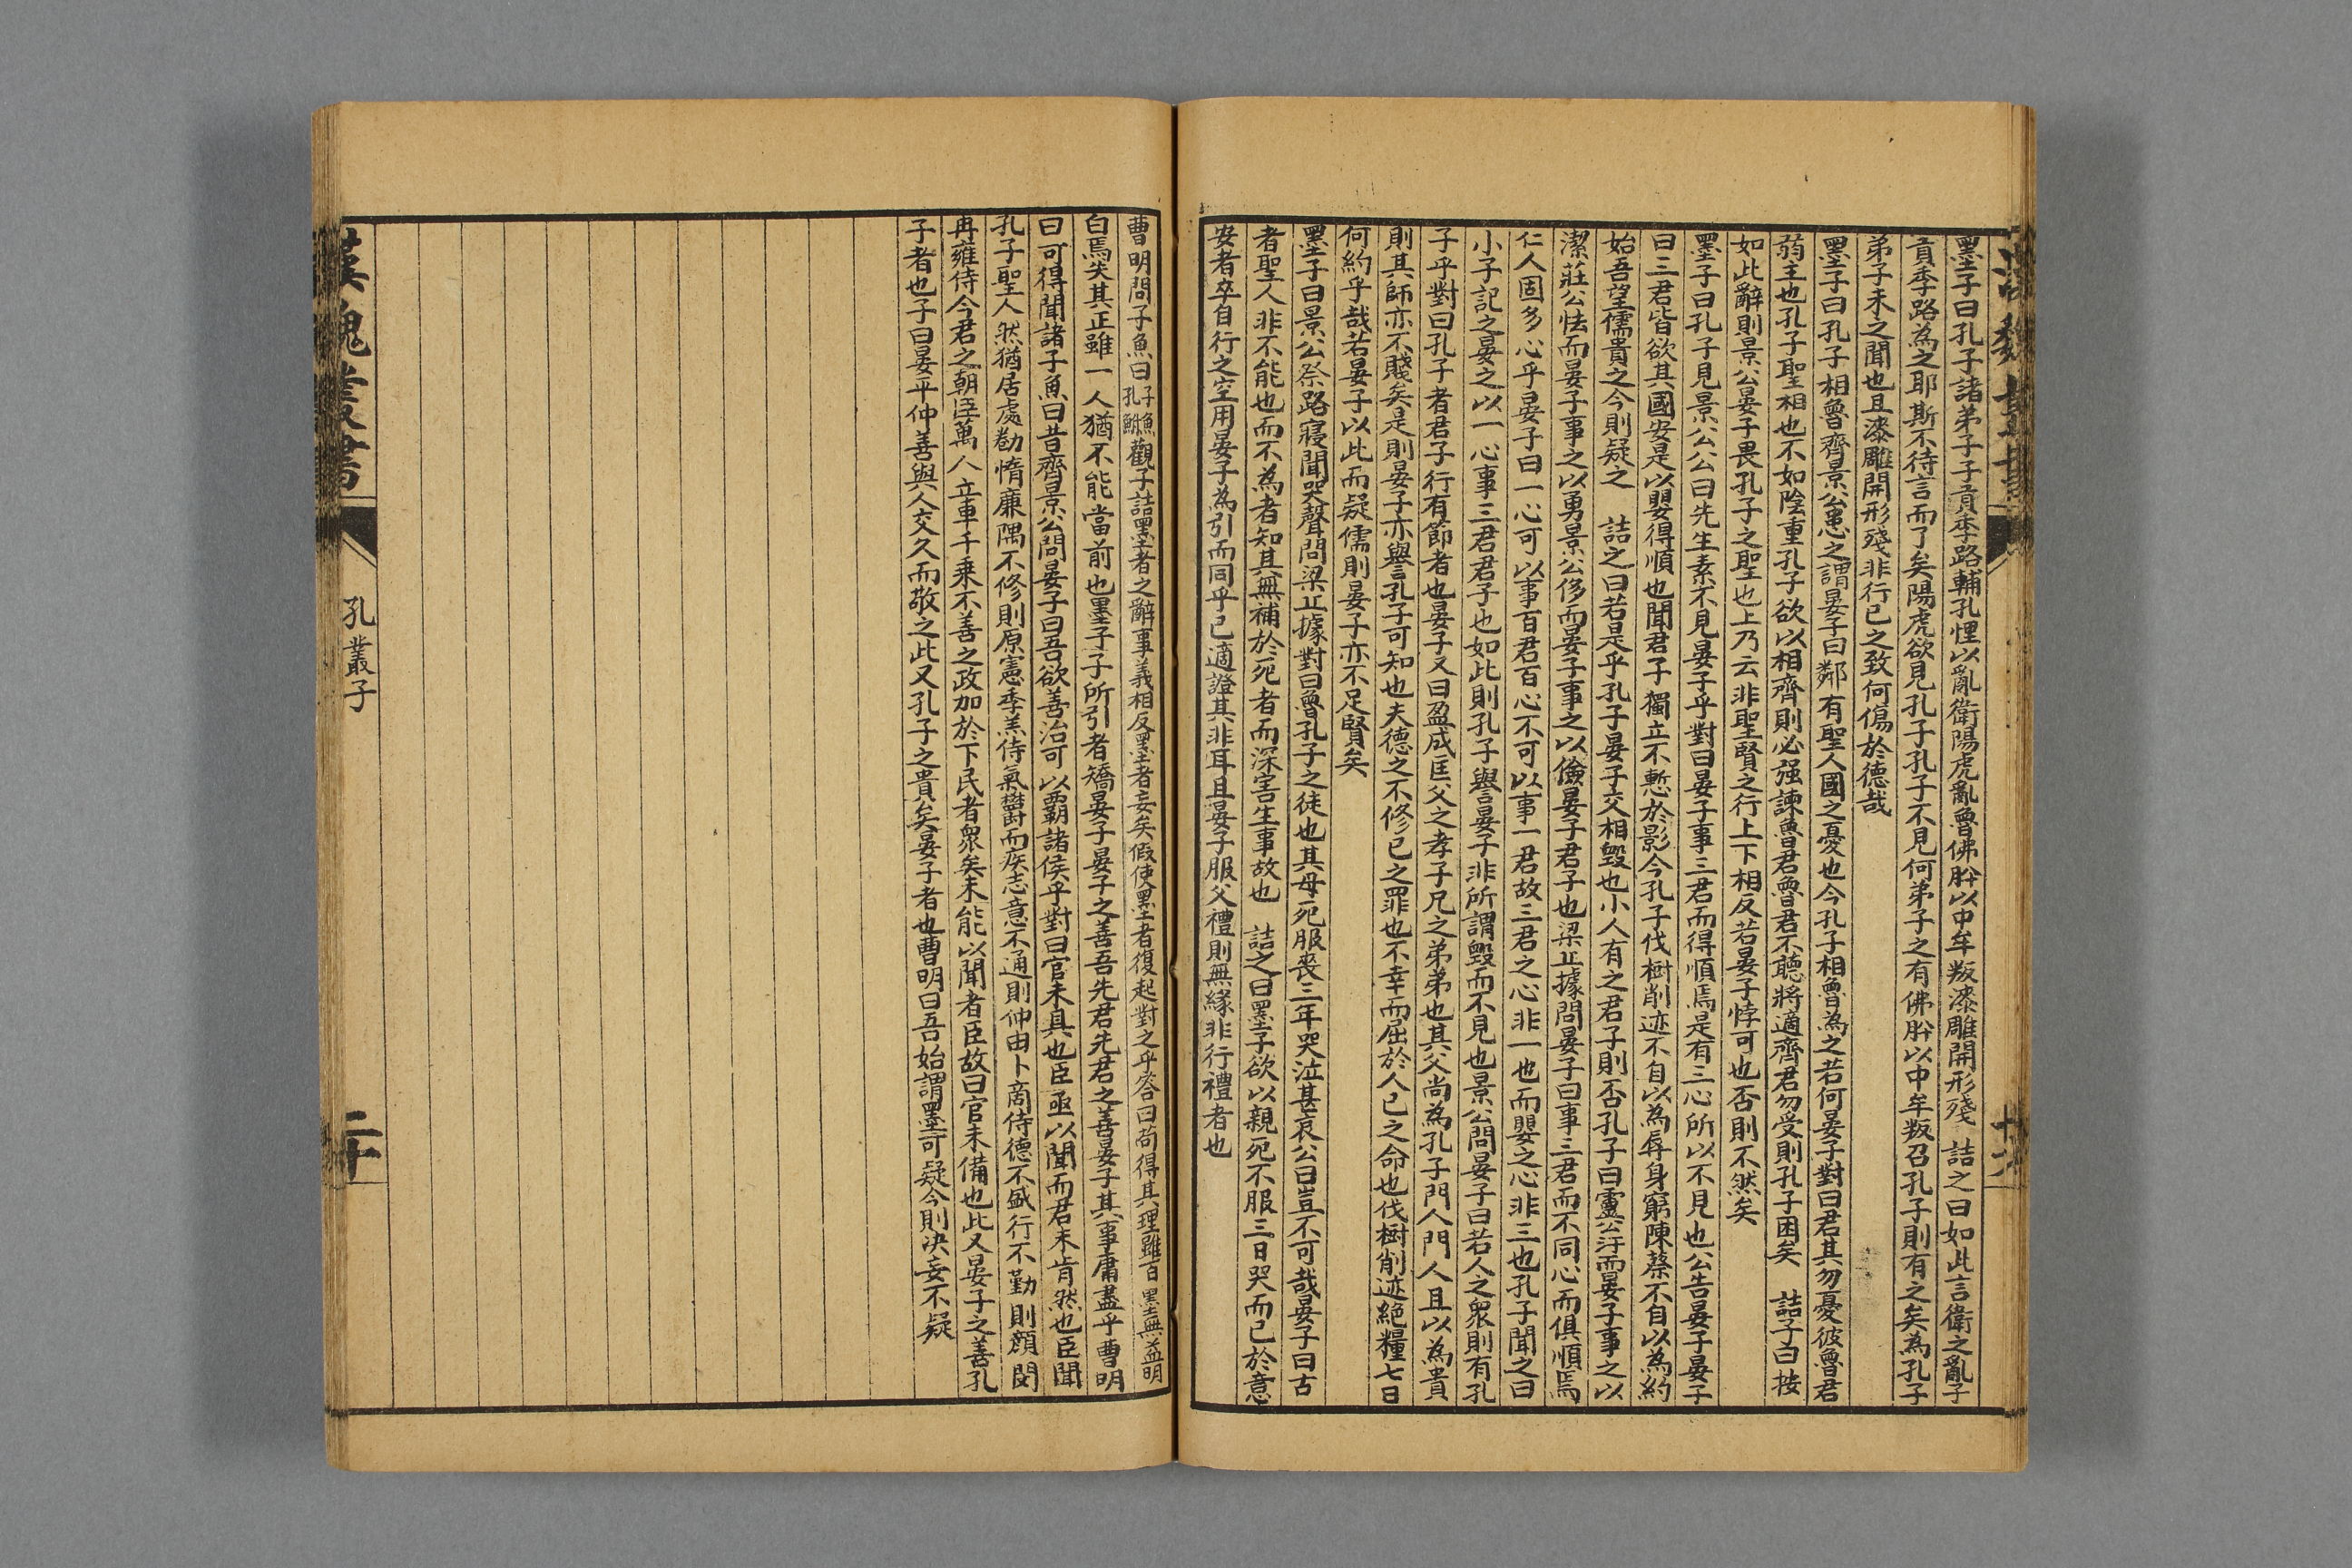 墨子曰孔子諸弟子子貢季路輔孔悝以亂衛陽虎亂魯佛肸以中牟叛漆雕開形殘　詰之曰如此言衛之亂子
貢季路為之耶斯不待言而了矣陽虎欲見孔子孔子不見何弟子之有佛肸以中牟叛召孔子則有之矣為孔子
弟子未之聞也且漆雕開形殘非行己之致何傷於德哉
墨子曰孔子相魯齊景公患之謂晏子曰鄰有聖人國之憂也今孔子相魯為之若何晏子對曰君其勿憂彼魯君
弱主也孔子聖相也不如陰重孔子欲以相齊則必强諫魯君魯君不聽將適齊君勿受則孔子困矣　詰子曰按
如此辭則景公晏子畏孔子之聖也上乃云非聖賢之行上下相反若晏子悖可也否則不然矣
墨子曰孔子見景公公曰先生素不見晏子乎對曰晏子事三君而得順焉是有三心所以不見也公告晏子晏子
曰三君皆欲其國安是以嬰得順也聞君子獨立不慙於影今孔子伐樹削迹不自以為辱身窮陳蔡不自以為約
始吾望儒貴之今則疑之　詰之曰若是乎孔子晏子交相毀也小人有之君子則否孔子曰靈公汙而晏子事之以
潔莊公怯而晏子事之以勇景公侈而晏子事之以儉晏子君子也梁丘據問晏子曰事三君而不同心而俱順焉
仁人固多心乎晏子曰一心可以事百君百心不可以事一君故三君之心非一也而嬰之心非三也孔子聞之曰
小子記之晏之以一心事三君君子也如此則孔子譽晏子非所謂毀而不見也景公問晏子曰若人之眾則有孔
子乎對曰孔子者君子行有節者也晏子又曰盈成匡父之孝子兄之弟弟也其父尚為孔子門人門人且以為貴
則其師亦不賤矣是則晏子亦譽孔子可知也夫德之不修己之罪也不幸而屈於人己之命也伐樹削迹絕糧七日
何約乎哉若晏子以此而疑儒則晏子亦不足賢矣
墨子曰景公祭路寢聞哭聲問梁丘據對曰魯孔子之徒也其母死服喪三年哭泣甚哀公曰豈不可哉晏子曰古
者聖人非不能也而不為者知其無補於死者而深害生事故也　詰之曰墨子欲以親死不服三日哭而已於意
安者卒自行之空用晏子為引而同乎己適證其非耳且晏子服父禮則無緣非行禮者也
曹明問子魚曰子魚孔鮒觀子詰墨者之辭事義相反墨者妄矣假使墨者復起對之乎答曰苟得其理雖百墨無益明
白焉失其正雖一人猶不能當前也墨子子所引者矯晏子晏子之善吾先君先君之善晏子其事庸盡乎曹明
曰可得聞諸子魚曰昔齊景公問晏子曰吾欲善治可以霸諸侯乎對曰官未具也臣亟以聞而君未肯然也臣聞
孔子聖人然猶居處勌惰廉隅不修則原憲季羔侍氣鬱而疾志意不通則仲由卜商侍德不盛行不勤則顏閔
冉雍侍今君之朝臣萬人立車千乘不善之政加於下民者眾矣未能以聞者臣故曰官未備也此又晏子之善孔
子者也子曰晏平仲善與人交久而敬之此又孔子之貴矣晏子者也曹明曰吾始謂墨可疑今則決妄不疑
漢魏叢書
孔叢子
二十